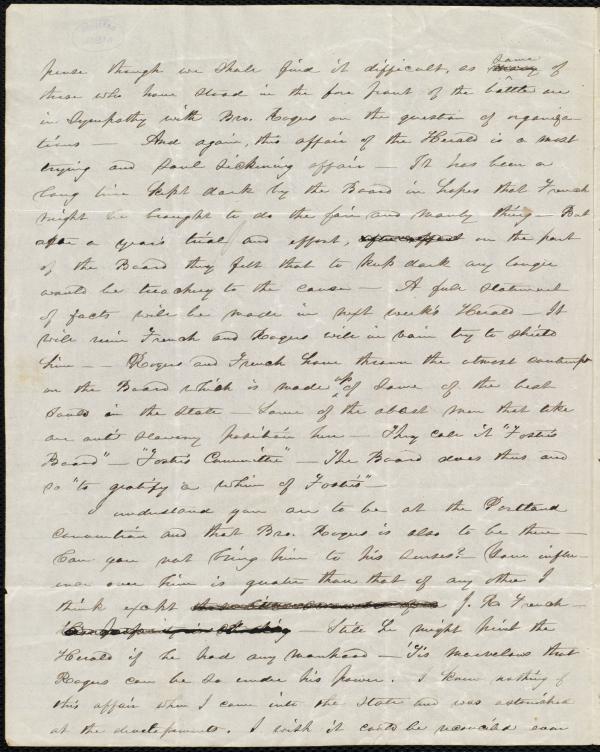 pense though we shall find it difficult, as some of
those who have stood in the fore front of the battle are
in sympathy with Bro. Rogers on the question of organiza
tions — And again, this affair of the Herald is a most
trying and soul sickening affair — It has been a
long time kept dark by the Board in hopes that French
might be brought to do the fair and manly thing — But
after a year's trial and effort, on the part
of the Board they felt that to keep dark any longer
would be treachery to the cause — A full statement
of facts will be made in next week's Herald — It
will ruin French and Rogers will in vain try to shield
him — Rogers and French have thrown the utmost contempt
on the Board which is made up of some of the best
souls in the State — Some of the ablest men that take
an anti slavery position here — They call it "Foster's
Board" — "Foster's Committee" — The Board does thus and
so "to gratify a whim of Foster's" —
I understand you are to be at the Portland
convention and that Bro. Rogers is also to be there —
Can you not bring him to his senses? — Your influ-
ence over him is greater than that of any other I
think except J. R. French —
— Still he might print the
Herald if he had any manhood — 'Tis marvelous that
Rogers can be so under his power. I knew nothing of
this affair when I came into the State and was astonished
at the developements. I wish it could be reconciled even